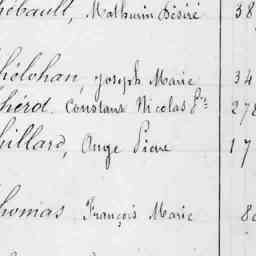 hébault, Mathurin Désiré 38
hélohan, Joseph Marie 34
hérot Constant Nicolas 278
hillard, Ange Pierre 17
homas François Marie 8